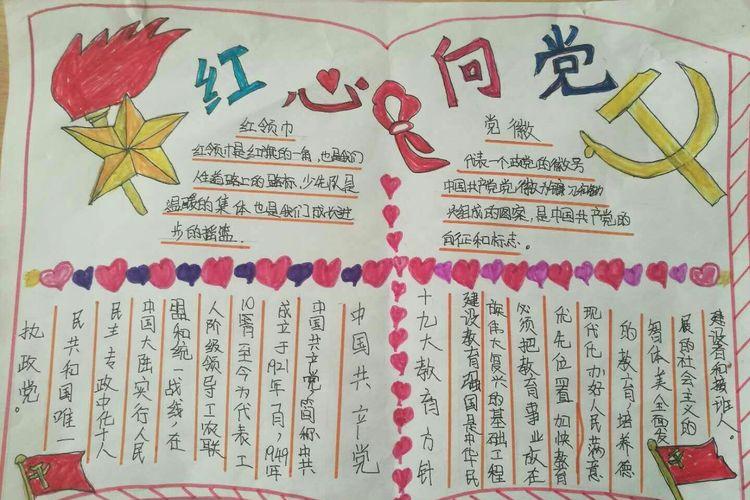 红心向党
红领巾
红领巾是红旗的一角，也是我们
人生道路上的路标，少先队是
温暖的集体也是我们成长进
步的摇篮。
党徽
代表一个政党的徽号
中国共产党党徽为镰刀和
组成的图案，是中国共产党的
征和标志。
中国共产党
中国共产党，简称中共
成立于1921年7月，1949年
10月至今为代表工
人阶级领导工农联
盟和统一战线，在
中国大陆实行人民
民主专政中华人
民共和国唯一
执政党。
十九大教育方针
建设教育强国是中华民
族伟大复兴的基础工程
必须把教育事业放在
优先位置加快教育
现代化办好人民满意
的教育培养德
智体美全面发
展的社会主义的
建设者和接班人。